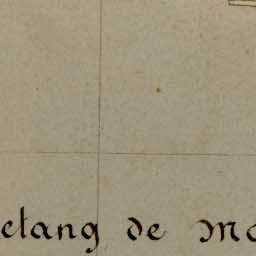 etang de Mo